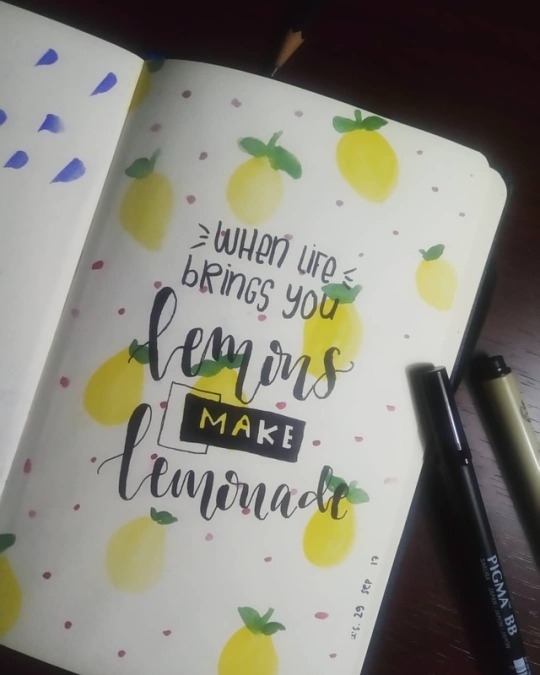 WHEN LIFE
brINGS YOU
lemons
MAKE
lemonade
29 SEP 17
PIGMA BB